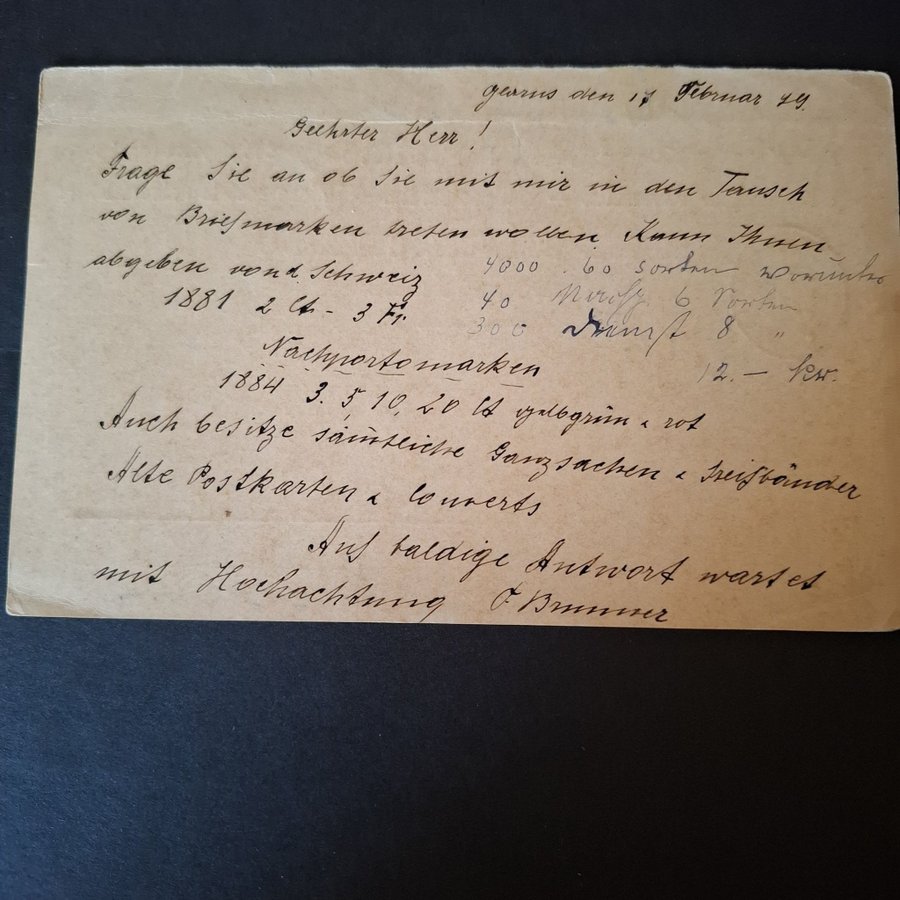 den 17 Februar 99.
Geehrter Herr!
Frage Sie an ob Sie mit mir in den Tausch
von Briefmarken treten wollen. Kann Ihnen
abgeben von d. Schweiz 4000 . 60 Sorten worunter
1881 2 Ct - 3 Fr. 40 6 Sorten
300 Dienst 8 "
Nachportomarken 12.- kr.
1884 3. 5, 10, 20 Ct gelbgrün & rot
Auch besitze sämtliche Ganzsachen & Streifbänder
Alte Postkarten & Couverts
Auf baldige Antwort wartet
mit Hochachtung O Brunner